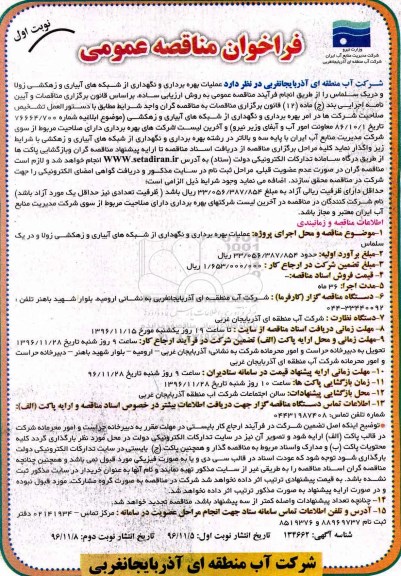 نوبت اول
وزارت نیرو
شرکت مدیریت منابع آب ایران
شرکت آب منطقه ای آذربایجانغربی
فراخوان مناقصه عمومی
شرکت آب منطقه ای آذربایجانغربی در نظر دارد عملیات بهره برداری و نگهداری از شبکه های آبیاری و زهکشی زولا
و دریک سلماس را از طریق انجام فرآیند مناقصه عمومی به روش ارزیابی ساده، براساس قانون برگزاری مناقصات و آیین
نامه اجرایی بند (ج) ماده (۱۲) قانون برگزاری مناقصات به مناقصه گران واجد شرایط مطابق با دستورالعمل تشخیص
صلاحیت شرکت ها در امر بهره برداری و نگهداری از شبکه های آبیاری و زهکشی (موضوع ابلاغیه شماره ۷۶۶۶۴/۷۰۰
تاریخ ۸۶/۱۰/۲۱ معاونت امور آب و آبفای وزیر نیرو) و آخرین لیست شرکت های بهره برداری دارای صلاحیت مربوط از سوی
شرکت مدیریت منابع آب ایران با پایه سه و بالاتر در رشته بهره برداری و نگهداری از شبکه های آبیاری و زهکشی با شرایط
زیر واگذار نماید کلیه مراحل برگزاری مناقصه از دریافت اسناد مناقصه تا ارایه پیشنهاد مناقصه گران وبازگشایی پاکت ها
از طریق درگاه سامانه تدارکات الکترونیکی دولت (ستاد) به آدرس WWW.setadiran.ir انجام خواهد شد و لازم است
مناقصه گران در صورت عدم عضویت قبلی، مراحل ثبت نام در سایت مذکور و دریافت گواهی امضای الکترونیکی را جهت
شرکت در مناقصه محقق سازند. اضافه می نماید وجود شرایط ذیل الزامی است:
حداقل دارای ظرفیت ریالی آزاد به مبلغ ۳۳/۰۵۶/۳۸۷/۸۵۴ ریال باشد ( ظرفیت تعدادی نیز حداقل یک مورد آزاد باشد)
نام شرکت کنندگان در مناقصه در آخرین لیست شرکتهای بهره برداری دارای صلاحیت مربوط از سوی شرکت مدیریت منابع
آب ایران معتبر و مجاز باشد.
اطلاعات مناقصه و زمانبندی
۱-موضوع مناقصه و محل اجرای پروژه: عملیات بهره برداری و نگهداری از شبکه های آبیاری و زهکشی زولا و دریک
سلماس
۲-مبلغ برآورد اولیه: حدود ۳۳/۰۵۶/۳۸۷/۸۵۴ ریال
۳-مبلغ تضمین شرکت در ارجاع کار: ۱/۶۵۳/۰۰۰/۰۰۰ ریال
۴- قیمت فروش اسناد مناقصه:-
۵-مدت اجرا: ۳۶ ماه
۶- دستگاه مناقصه گزار (کارفرما) : شرکت آب منطقه ای آذربایجانغربی به نشانی ارومیه بلوار شهید باهنر تلفن :
۰۴۴-۳۳۴۴۰۰۹۲
۷-دستگاه نظارت : شرکت آب منطقه ای آذربایجان غربی
۸- مهلت زمانی دریافت اسناد مناقصه از سایت : تا ساعت ۱۹ روز یکشنبه مورخ ۱۳۹۶/۱۱/۱۵
۹-مهلت زمانی و محل ارایه پاکت (الف) تضمین شرکت در فرآیند ارجاع کار: ساعت ۹ روز شنبه تاریخ ۱۳۹۶/۱۱/۲۸
تحویل به دبیرخانه حراست و امور محرمانه شرکت به نشانی: آذربایجان غربی – ارومیه – بلوار شهید باهنر – دبیرخانه حراست
و امور محرمانه شرکت آب منطقه ای آذربایجان غربی
۱۰- مهلت زمانی ارایه پیشنهاد قیمت در سامانه ستادیران : ساعت ۹ روز شنبه تاریخ ۹۶/۱۱/۲۸
۱۱- زمان بازگشایی پاکت ها: ساعت ۱۰ روز شنبه تاریخ ۱۳۹۶/۱۱/۲۸
۱۲- محل بازگشایی پیشنهادات: سالن اجتماعات شرکت آب منطقه ای آذربایجان غربی
۱۳- اطلاعات تماس دستگاه مناقصه گزار جهت دریافت اطلاعات بیشتر در خصوص اسناد مناقصه و ارایه پاکت (الف):
شماره تلفن تماس: ۰۴۴۳۱۹۸۷۴۰۸
*توضیح اینکه اصل تضمین شرکت در فرآیند ارجاع کار بایستی در مهلت مقرر به دبیرخانه حراست و امور محرمانه شرکت
در قالب پاکت (الف) ارایه شود و تصویر آن نیز در سایت تدارکات الکترونیکی دولت در محل مورد نظر بارگذاری گردد کلیه
محتویات پاکت (ب) و مدارک واسناد مربوط به مناقصه گذار و همچنین پاکت (ج) بایستی در سایت تدارکات الکترونیکی دولت
بارگذاری شود توجه شود که عودت اسناد در قالب سی دی و یا به صورت فیزیکی مورد قبول نمی باشد و همچنین چنانچه
مناقصه گران اسناد مناقصه را به طریقی غیر از سایت مذکور تهیه نمایند و نام آنها به عنوان خریدار در سایت مذکور ثبت
نشده باشد، به پیشنهاد قیمتی ترتیب اثر داده نخواهد شد شرکت در مناقصه به صورت گروه مشارکت، مورد قبول نبوده
و در صورت ارایه پیشنهاد به صورت مذکور ترتیب اثر داده نخواهد شد.
۱۴- چنانچه تعداد پیشنهادات واصله کمتر از سه پیشنهاد باشد، مناقصه تجدید خواهد شد.
۱۵- آدرس و تلفن و اطلاعات تماس سامانه ستاد جهت انجام مراحل عضویت در سامانه : مرکز تماس - ۰۲۱۴۱۹۳۴ دفتر
ثبت نام ۸۸۹۶۹۷۳۷ و ۸۵۱۹۳۷۶
شناسه آگهی: ۱۳۴۶۶۲ تاریخ انتشار نوبت اول: ۹۶/۱۱/۵ تاریخ انتشار نوبت دوم: ۹۶/۱۱/۸
شرکت آب منطقه ای آذربایجانغربی